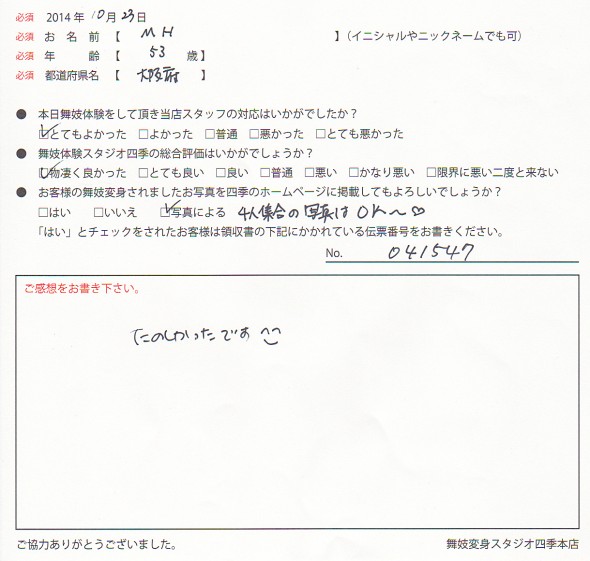 必須 2014年 10月 23日
必須 お 名 前 【 MH 】(イニシャルやニックネームでも可)
必須 年 齢 【 53 歳】
必須 都道府県名 【 大阪府 】
● 本日舞妓体験をして頂き当店スタッフの対応はいかがでしたか?
☑とてもよかった □よかった □普通 □悪かった □とても悪かった
● 舞妓体験スタジオ四季の総合評価はいかがでしょうか?
☑物凄く良かった □とても良い □良い □普通 □悪い □かなり悪い □限界に悪い二度と来ない
● お客様の舞妓変身されましたお写真を四季のホームページに掲載してもよろしいでしょうか?
□はい □いいえ ☑写真による 4人集合の写真はOK〜♡
「はい」とチェックをされたお客様は領収書の下記にかかれている伝票番号をお書きください。
No. 041547
ご感想をお書き下さい。
たのしかったです^^
ご協力ありがとうございました。 舞妓変身スタジオ四季本店